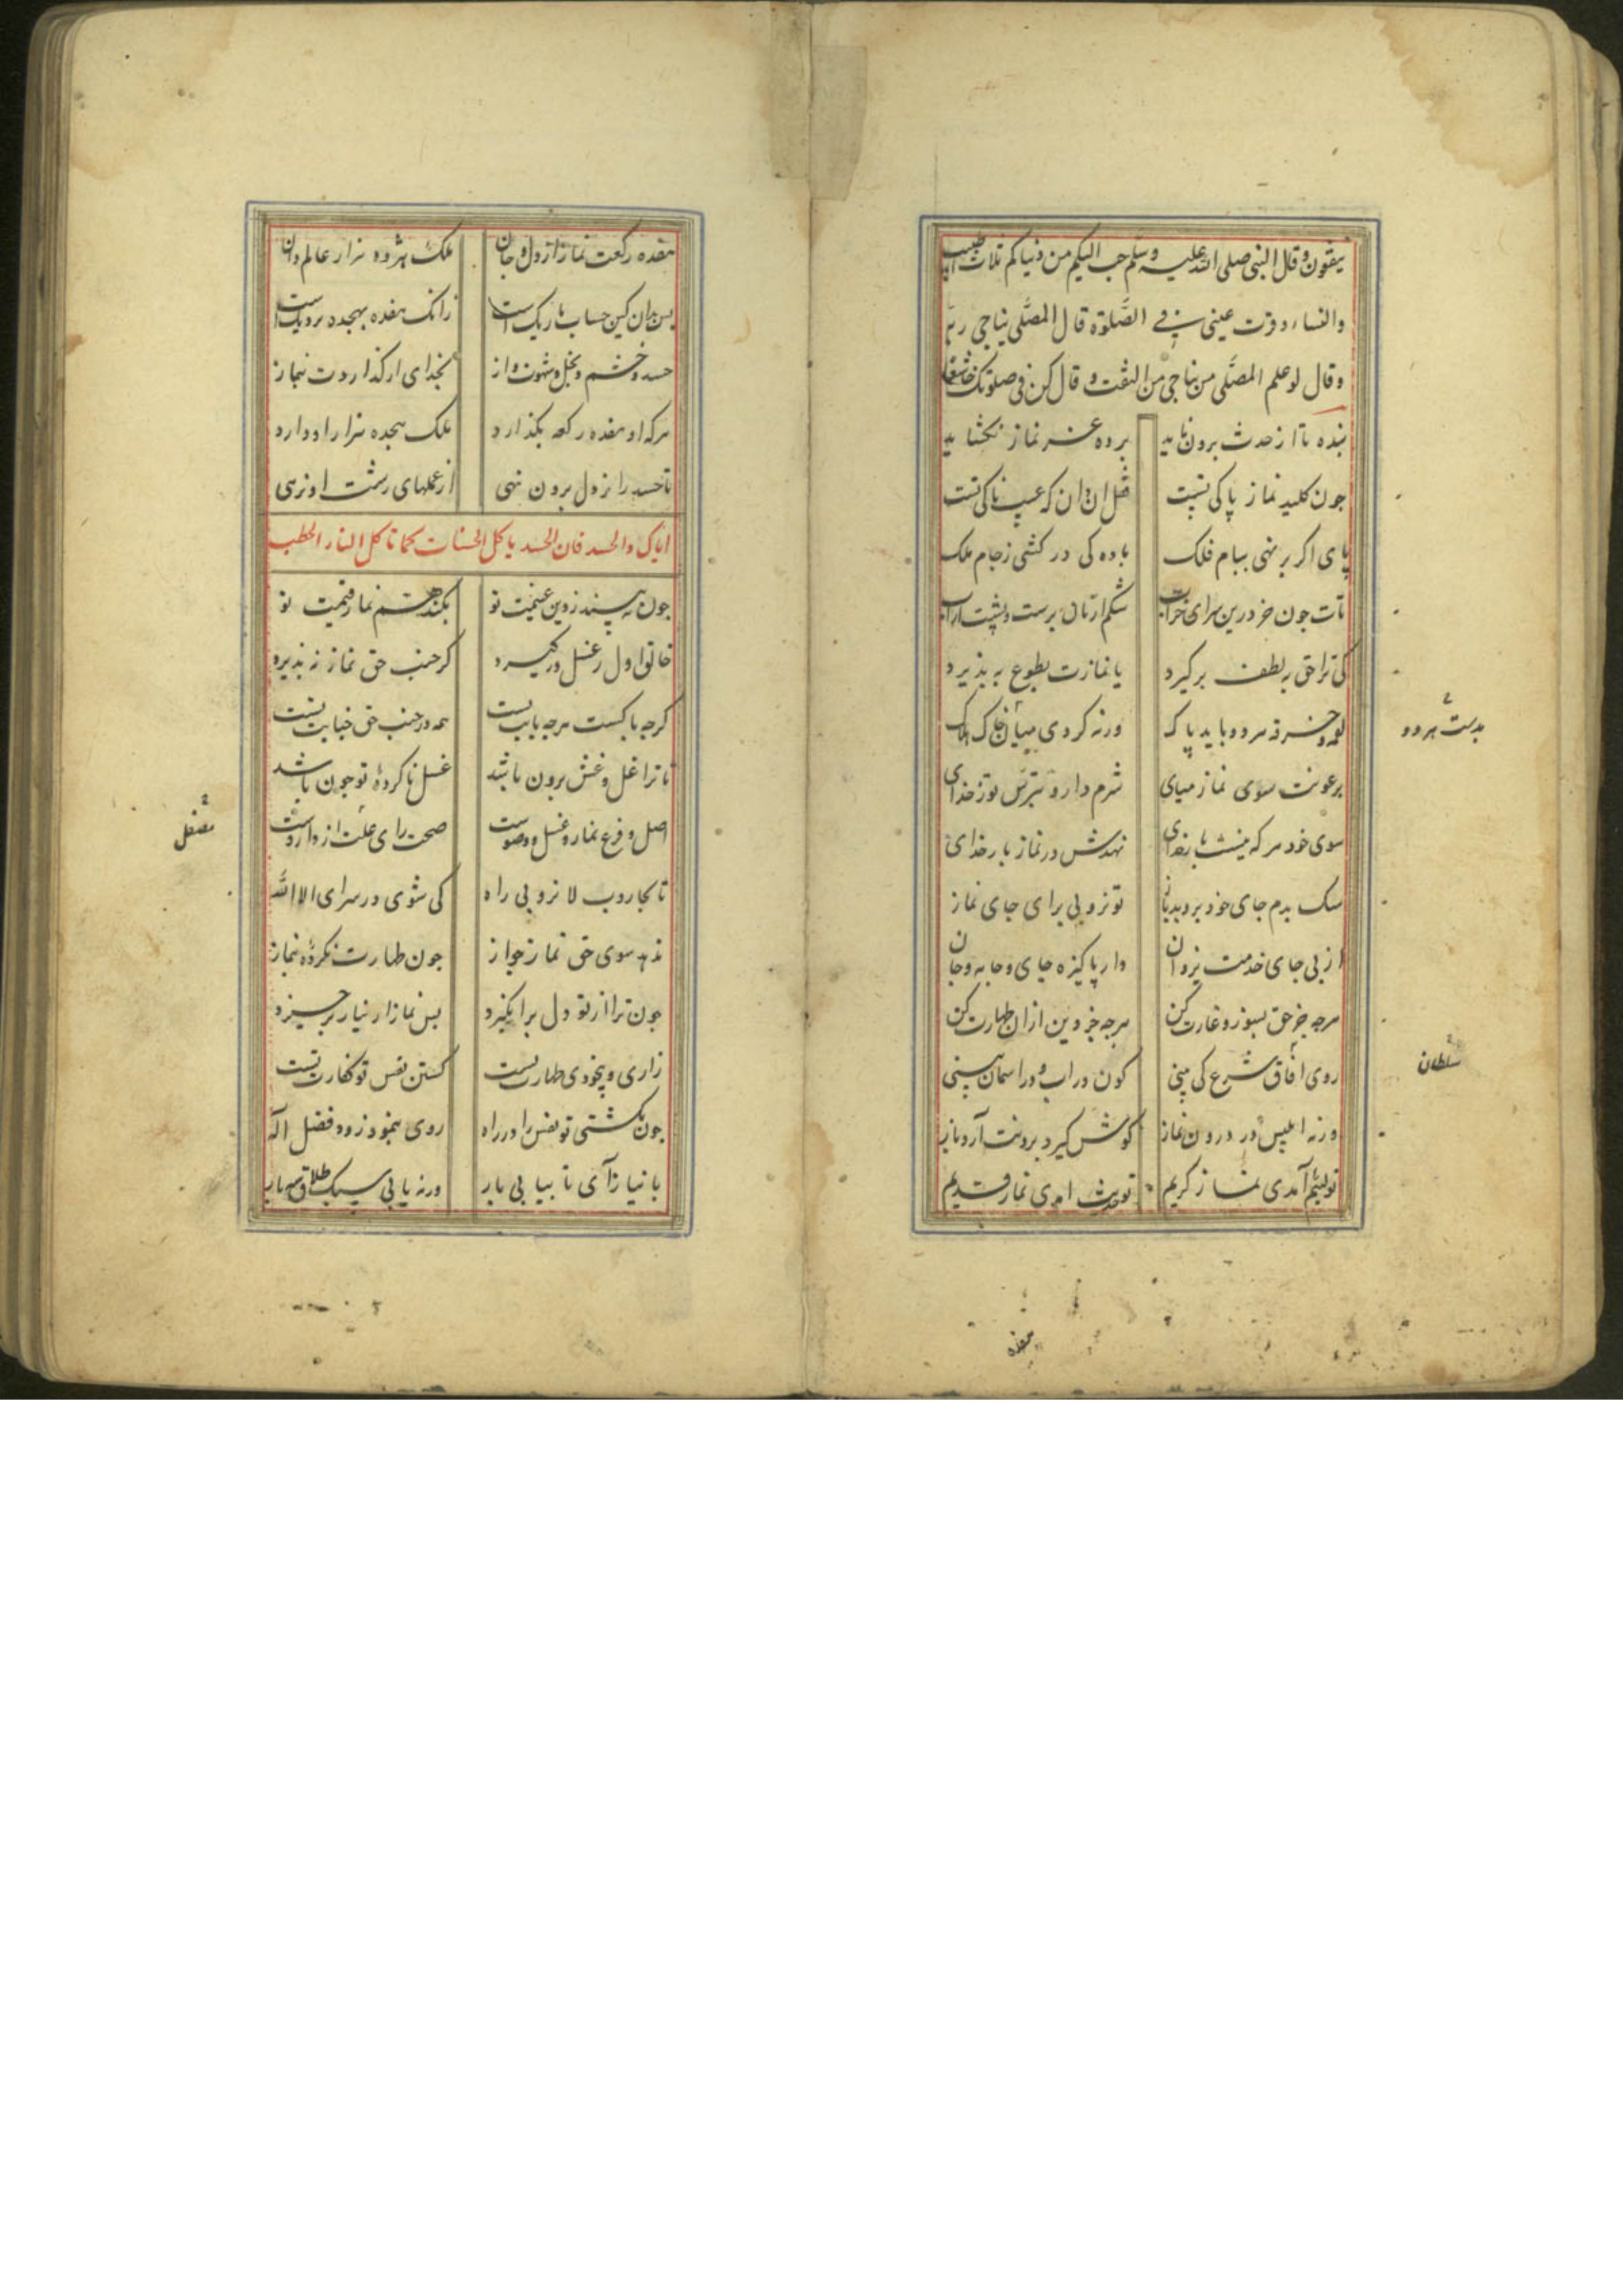 ینفقون وقال النبی صلی الله علیه وسلم حبب الیکم من دنیاکم ثلاث الطیب
والنساء وقرت عینی فی الصَّلوة قال المصَّلی یناجی ربّه
وقال لو علم المصَّلی من یناجی من التفت و قال کن فی صلوتک خاشعا
بنده تا از حدث برون ناید پرده عز نماز نکشاید
جون کلید نماز پاکی تست قفل ان دان که عیب ناکی تست
پای اگر بر نهی ببام فلک باده کی درکشی زجام ملک
تات جون خر درین سرای خراب شکم از نان پرست و پشت از اب
کی ترا حق به لطف برگیرد یا نمازت بطوع بپذیرد
لقمه و خرقه هر دو باید پاک ورنه گردی میان خاک هلاک
بدست هر دو
برعونت سوی نماز میای شرم دار و بترس تو ز خدای
سوی خود هر که نیست بار خدای نهدش در نماز بار خدای
سک بدم جای خود بروبد باز تو نروبی برای جای نماز
از پی جای خدمت یزدان دار پاکیزه جای و جامه و جان
هرجه جز حق بسوز و غارت کن هرجه جز دین ازان طهارت کن
روی افاق شرع کی بینی کون در اب و در اسمان بینی
سلطان
ورنه ابلیس در درون نماز گوش گیرد برونت آرد باز
تو لئیم آمدی نماز کریم تو حدث امدی نماز قدیم
هفده
هفده رکعت نماز از دل و جان ملک هژده هزار عالم دان
پس بدان کین حساب باریک است زانک هفده بهجده نزدیک است
حسد و خشم و بخل و شهوت و از بخدای ار گذاردت بنماز
هرکه او هفده رکعه بگذارد ملک هجده هزار او دارد
تا حسد را ز دل برون ننهی از عملهای زشت او نرهی
ایاک والحسد فان الحسد یاکل الحسنات کما تاکل النار الحطب
جون نه پسندد زوین غنیمت تو نکند هم نماز قیمت تو
خانوا ول ز غسل درگیرد گر جنب حق نماز نپذیرد
گرجه پاکست هرجه بابت تست همه در جنب حق جنابت تست
تا ترا غل و غش برون باشد غسل ناکردۀ تو جون باشد
اصل و فرع نماز و غسل و وضوست صحت رای علت از داروست
معضل
تا بجاروب لا نروبی راه کی شوی در سرای الا الله
ندهد سوی حق نماز جواز جون طهارت نکردۀ بنماز
جون ترا از تو دل برانگیزد پس نماز از نیاز برخیزد
زاری و بیخودی طهارت تست کشتن نفس تو کفارت تست
جون بکشتی تو نفس را در راه روی بنمود زود فضل اله
با نیاز آی تا بیابی بار ورنه یابی سبک طلاق سه بار